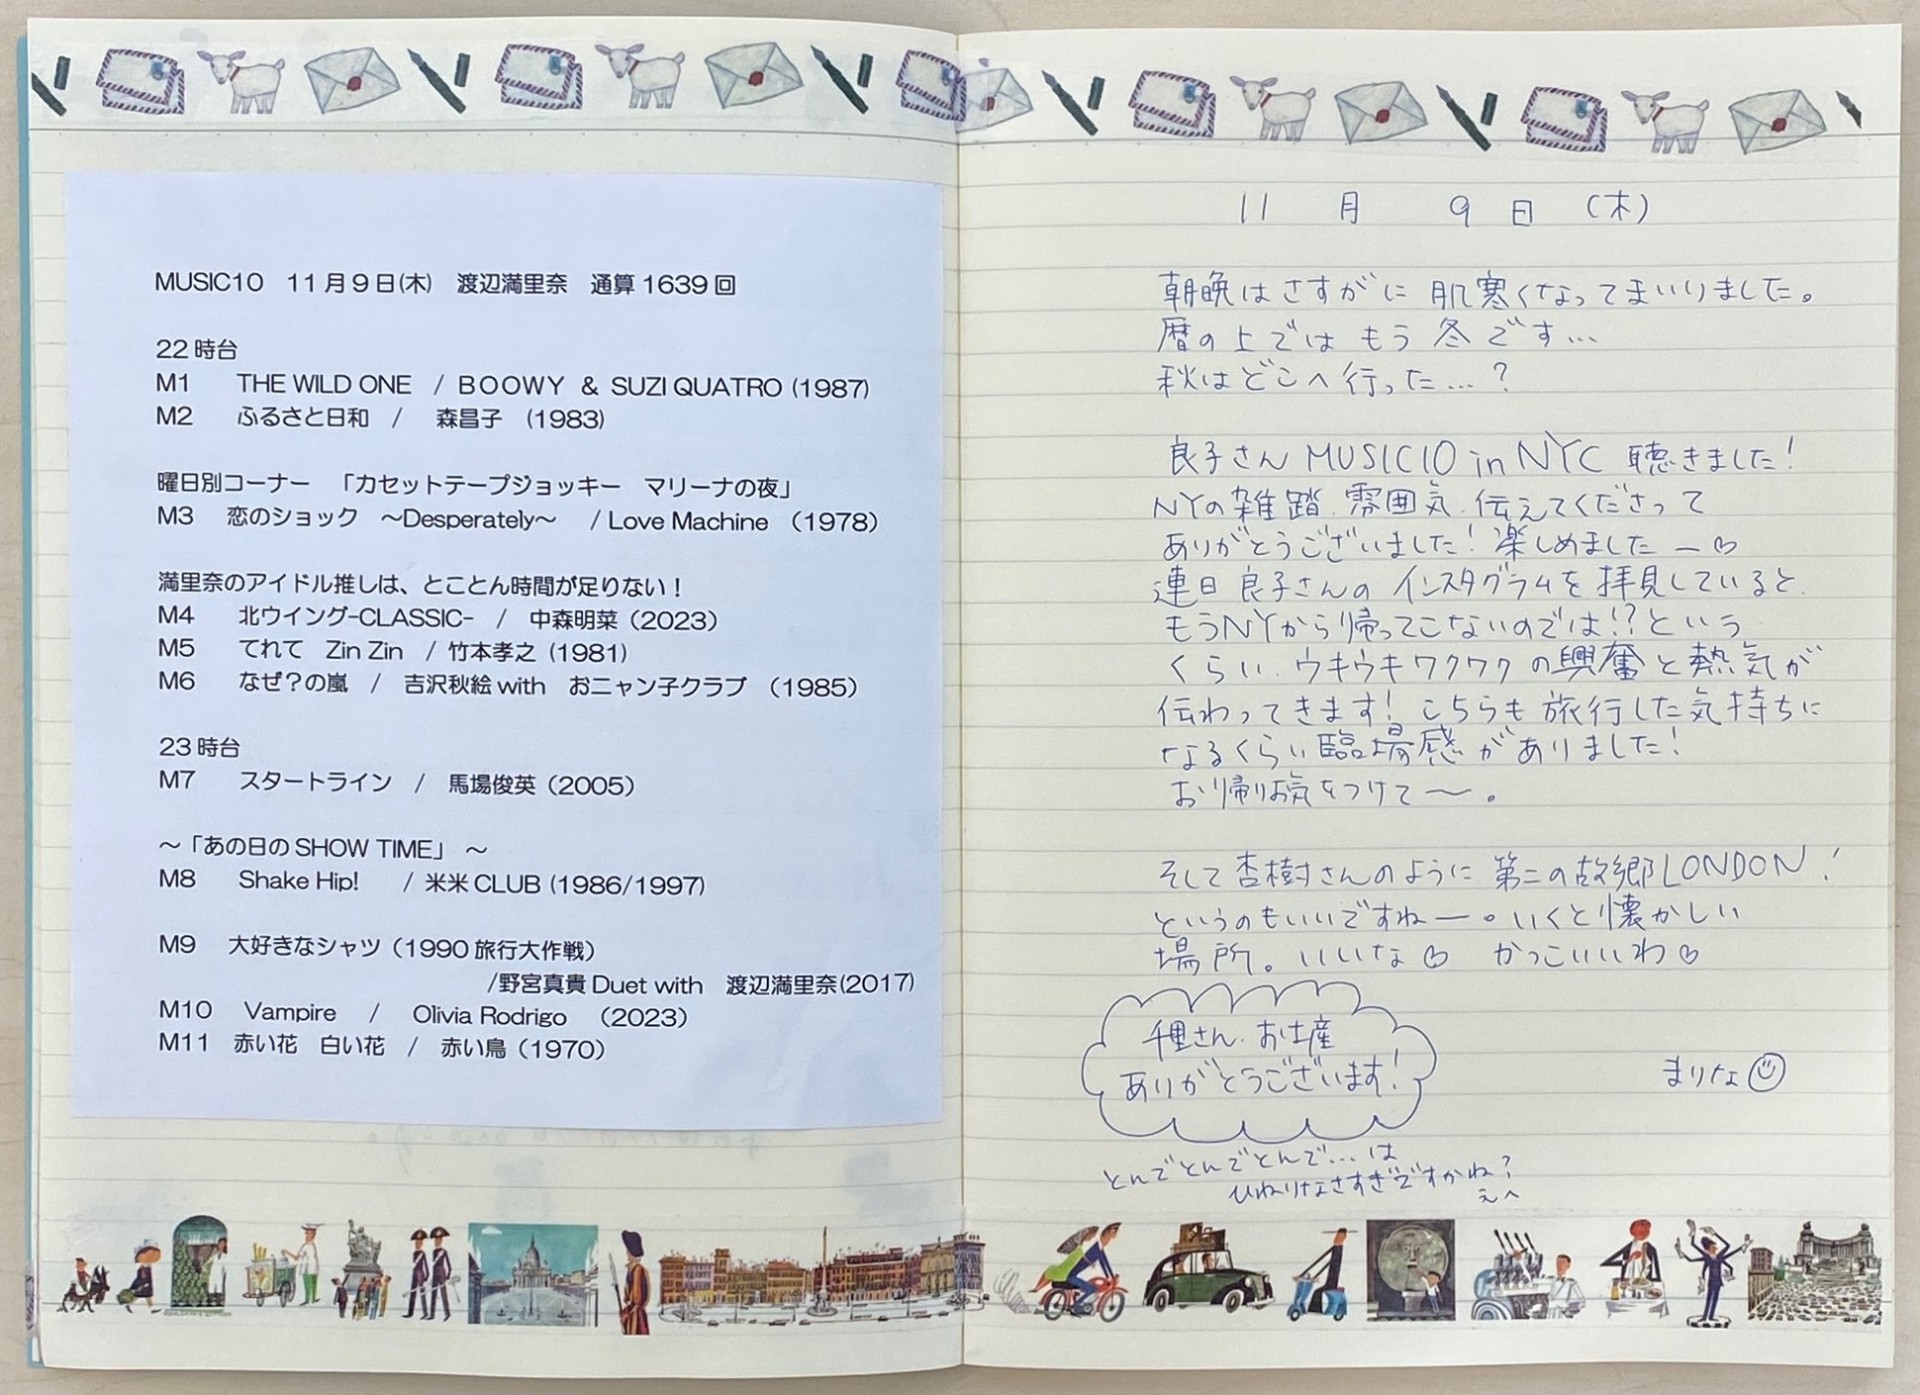 MUSIC10　11月9日(木)　渡辺満里奈　通算1639回
22時台
M1　THE WILD ONE　/　BOOWY　&　SUZI QUATRO (1987)
M2　ふるさと日和　/　森昌子　(1983)
曜日別コーナー　「カセットテープジョッキー　マリーナの夜」
M3　恋のショック　～Desperately～　/ Love Machine　（1978）
満里奈のアイドル推しは、とことん時間が足りない！
M4　北ウイング-CLASSIC-　/　中森明菜（2023）
M5　てれて　Zin Zin　/ 竹本孝之 (1981)
M6　なぜ？の嵐　/　吉沢秋絵 with　おニャン子クラブ　（1985）
23時台
M7　スタートライン　/　馬場俊英（2005）
～「あの日の SHOW TIME」　～
M8　Shake Hip!　/ 米米 CLUB (1986/1997)
M9　大好きなシャツ（1990 旅行大作戦）
/野宮真貴 Duet with　渡辺満里奈(2017)
M10　Vampire　/　Olivia Rodrigo　（2023）
M11　赤い花　白い花　/　赤い鳥（1970）
11月9日（木）
朝晩はさすがに肌寒くなってまいりました。
暦の上ではもう冬です…
秋はどこへ行った…？
良子さん MUSIC10 in NYC 聴きました！
NYの雑踏、雰囲気、伝えてくださって
ありがとうございました！楽しめましたー♡
連日良子さんのインスタグラムを拝見していると、
もうNYから帰ってこないのでは!?という
くらい、ウキウキワクワクの興奮と熱気が
伝わってきます！こちらも旅行した気持ちに
なるくらい臨場感がありました！
お帰りお気をつけて〜。
そして杏樹さんのように第二の故郷LONDON！
というのもいいですねー。いくと懐かしい
場所。いいな♡　かっこいいわ♡
千里さん、お土産
ありがとうございます！
まりな☺
とんでとんでとんで…は
ひねりなさすぎですかね？
えへ